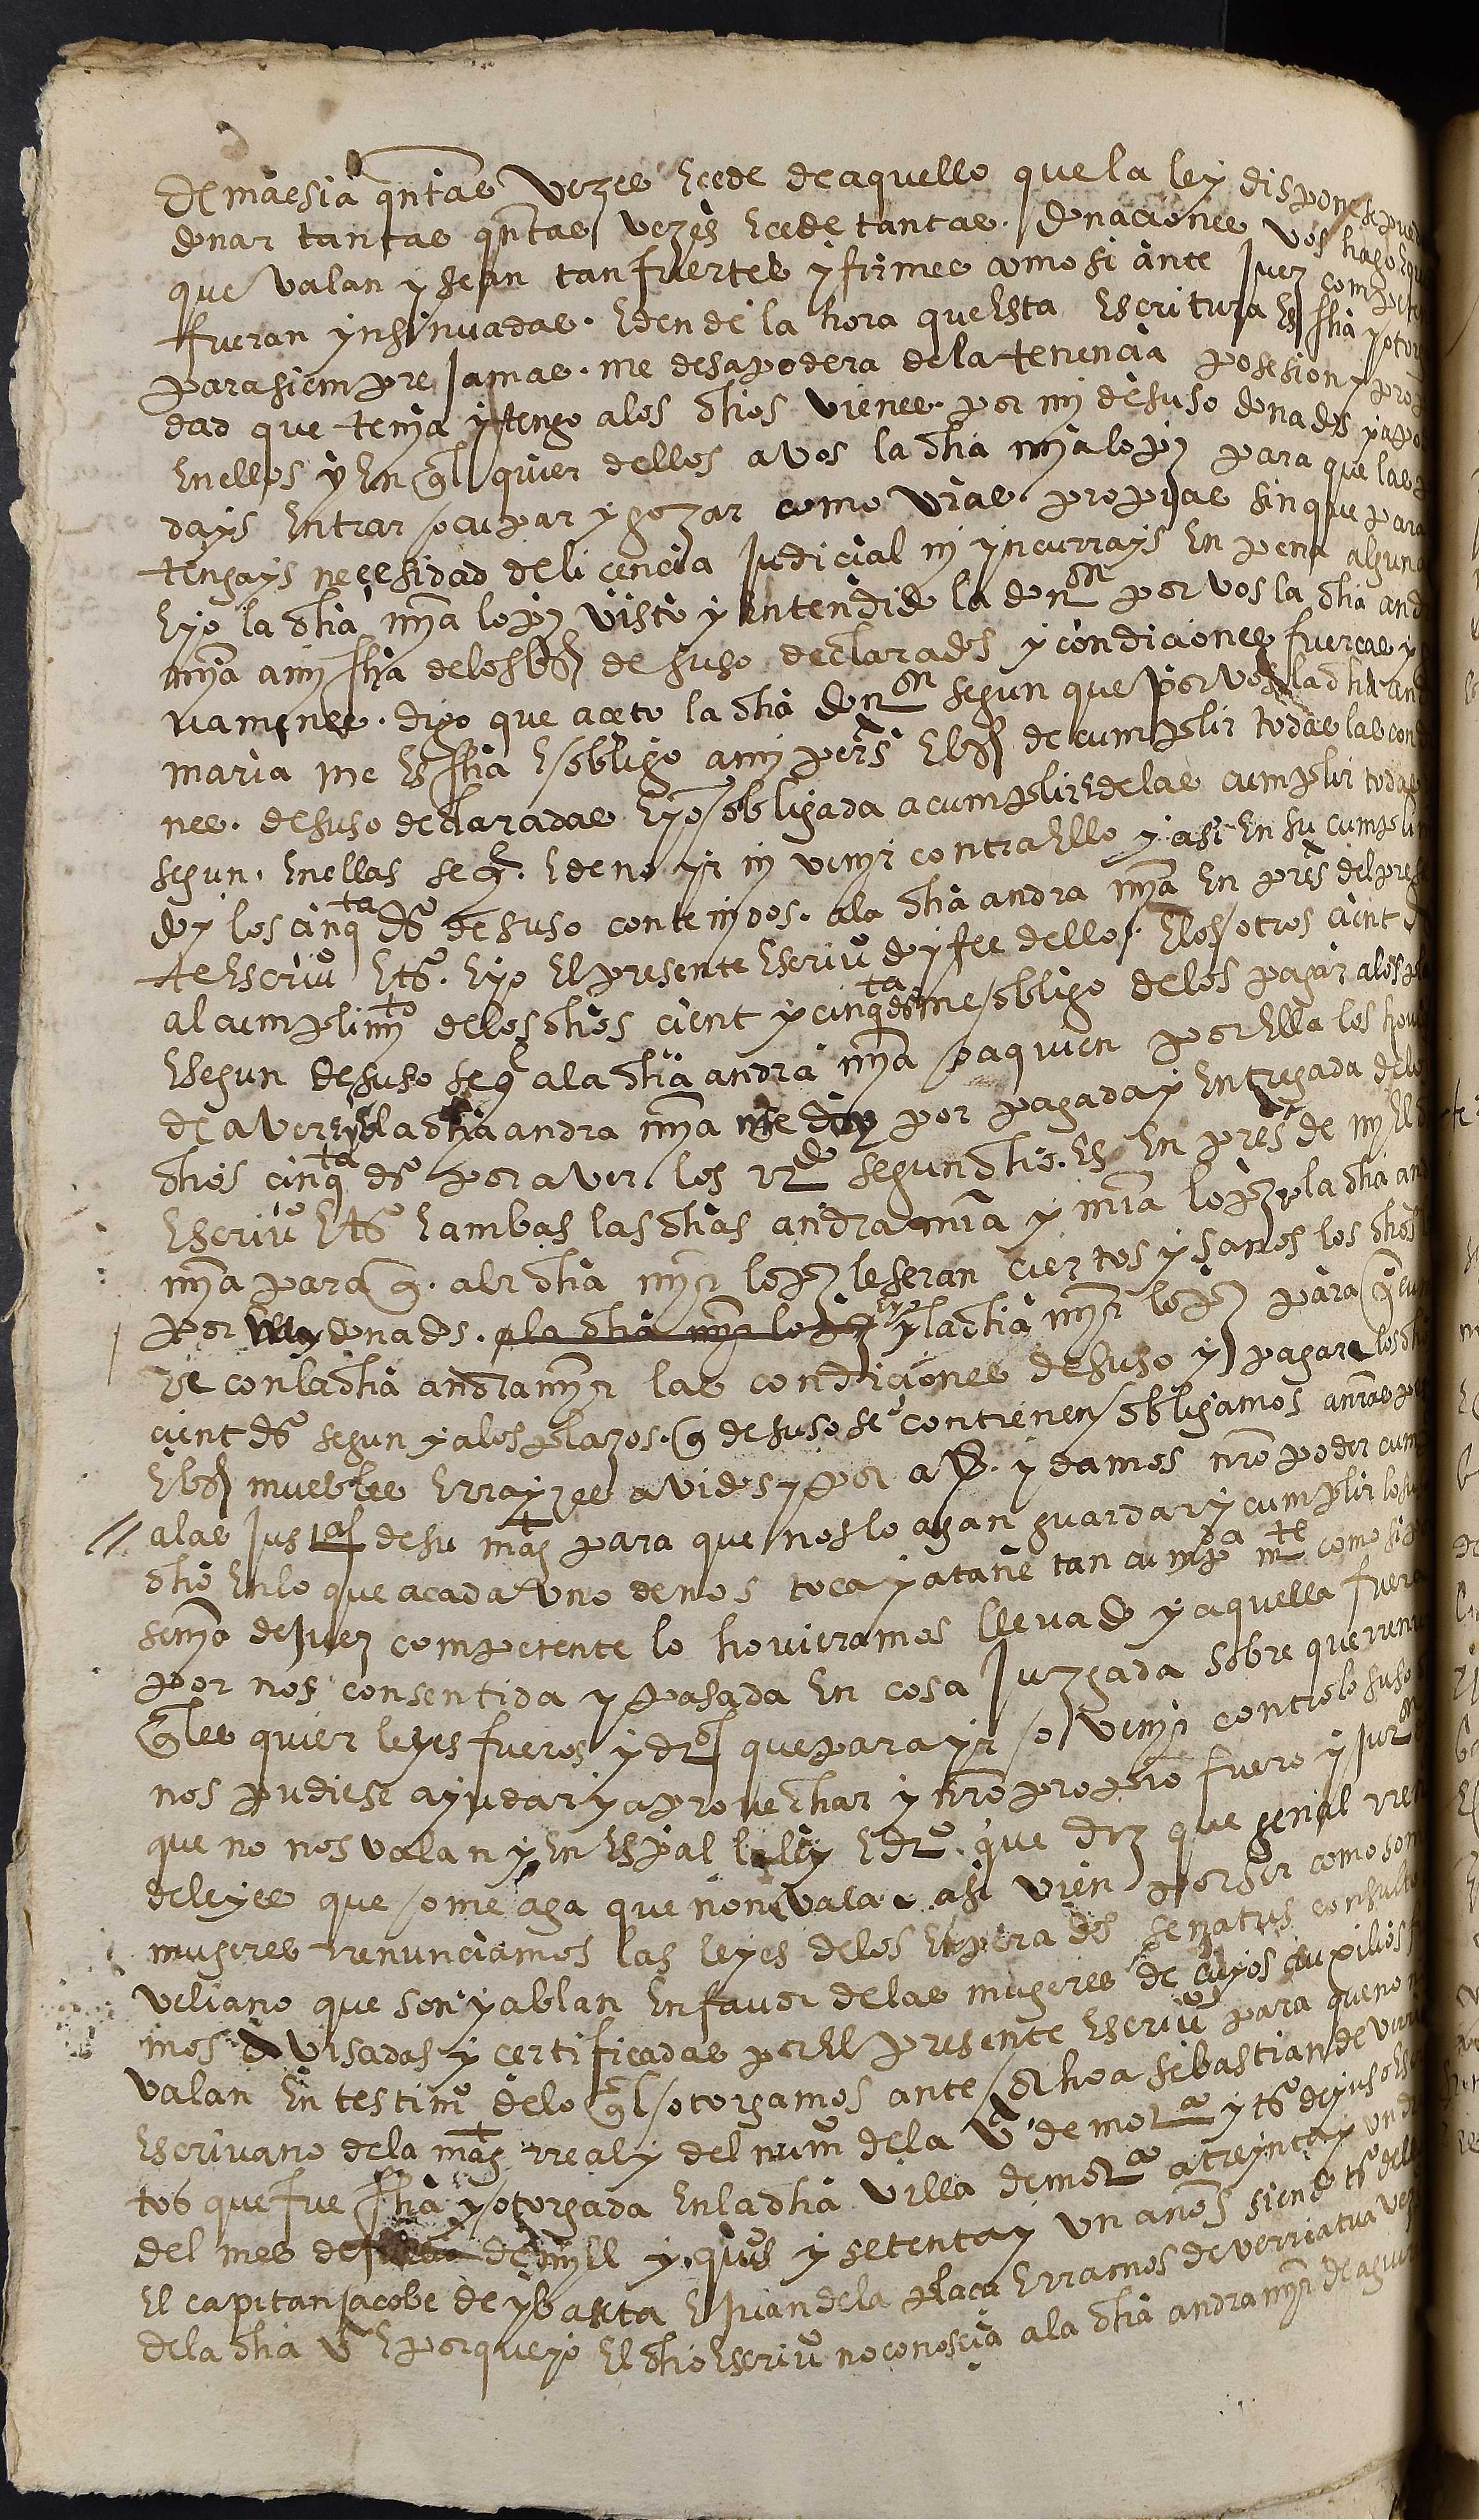 demaesia qntas vezes ecede de aquello que la ley dispone se pue
donar tantas qntas vezes ecede tantas donaciones vos hago e q
que valan y sean tan fuertes y firmes como si ante Juez compete
fueran ynsinuadas. E den de la hora questa escritura es fha y otor
para siempre Jamas. me desapodera dela tenencia posesion y prop
dad que tenia y tengo alos dhos vienes por mi desuso donados y apo
enellos y en ql quier dellos a vos la dha mja lopz para que las p
days entrar ocupar y gozar como vras propias sin que para
tengays necesidad de licencia Judicial nj yncurrays en pena alguna
E yo la dha mja lopz visto y entendido la donon por vos la dha and
mja a mj fha delos bs de suso declarados y condiciones fuercas y
vamenes. digo que aceto la dha donon segun que por vos la dha an
maria me es fha e obligo a mj persa e bs de cumplir todas las con
nes. desuso declaradas e yo obligada a cumplir e delas cumplir todas
segun. enellas se q. E de no yr nj venjr contra ello y asi en su cumpli
doy los cinqta ds de suso contenjdos. ala dha andra mja en pres del pres
te escrivo e ts. E yo el presente escrivo doy fee dello. E los otros cient d
al cumplimjto delos dhos cient y cinqta ds me obligo delos pagar alos pl
E segun desuso se q ala dha andra mja o a quien por ella los hovi
de aver e yo la dha andra mja me doy por pagada y entregada delo
dhos cinqta ds por aver los rdo segun dho. es en pres de mj el
escrivo e ts E ambas las dhas andra mja y mja lopz yo la dha an
mja para q. ala dha mja lopz le seran ciertos y sanos los dhos
por my donados. o la dha mja lopz e yo la dha mja lopz para q cun
re con la dha andra mja las condiciones desuso y pagare los dh
cient ds segun y alos plazos. q desuso se contienen obligamos a nras pe
E bs muebles E rrayzes avidos y por aver. y damos nro poder cum
alas Justas desu magt para que nos lo agan guardar y cumplir lo su
dho en lo que a cada uno de nos toca y atañe tan cumpda mte como si p
senja de Juez competente lo hovieramos llevado y aquella fuera
por nos consentida y pasada en cosa Juzgada sobre que rrenu
qles quier leyes fueros y dros que para yr o venjr contra lo suso
nos pudiese ayudar y aprovechar y nro proprio fuero y Juron
que no nos valan y en espal la ley e dro. que diz que general rren
de leyes que ome aga que non vala. asi vien por ser como som
mugeres rrenunciamos las leyes delos enperados senatus consulto
veliano que son y ablan en favor delas mugeres de cuyos auxilios f
mos avisadas y certificadas por el presente escrivo para que no n
valan en testimo delo ql otorgamos ante ochoa sebastian de
escrivano dela magt rreal y del numo dela va de mota y ts de yuso es
tos que fue fha y otorgada en la dha villa de mota a treynta y un di
del mes de de mjll y qujs y setenta y un años siendo ts dello
el capitan Jacobe de ybaseta e Juan dela placa e rramos de verriatua ve
dela dha va E porque yo el dho escrivo no conoscia ala dha andra mja de